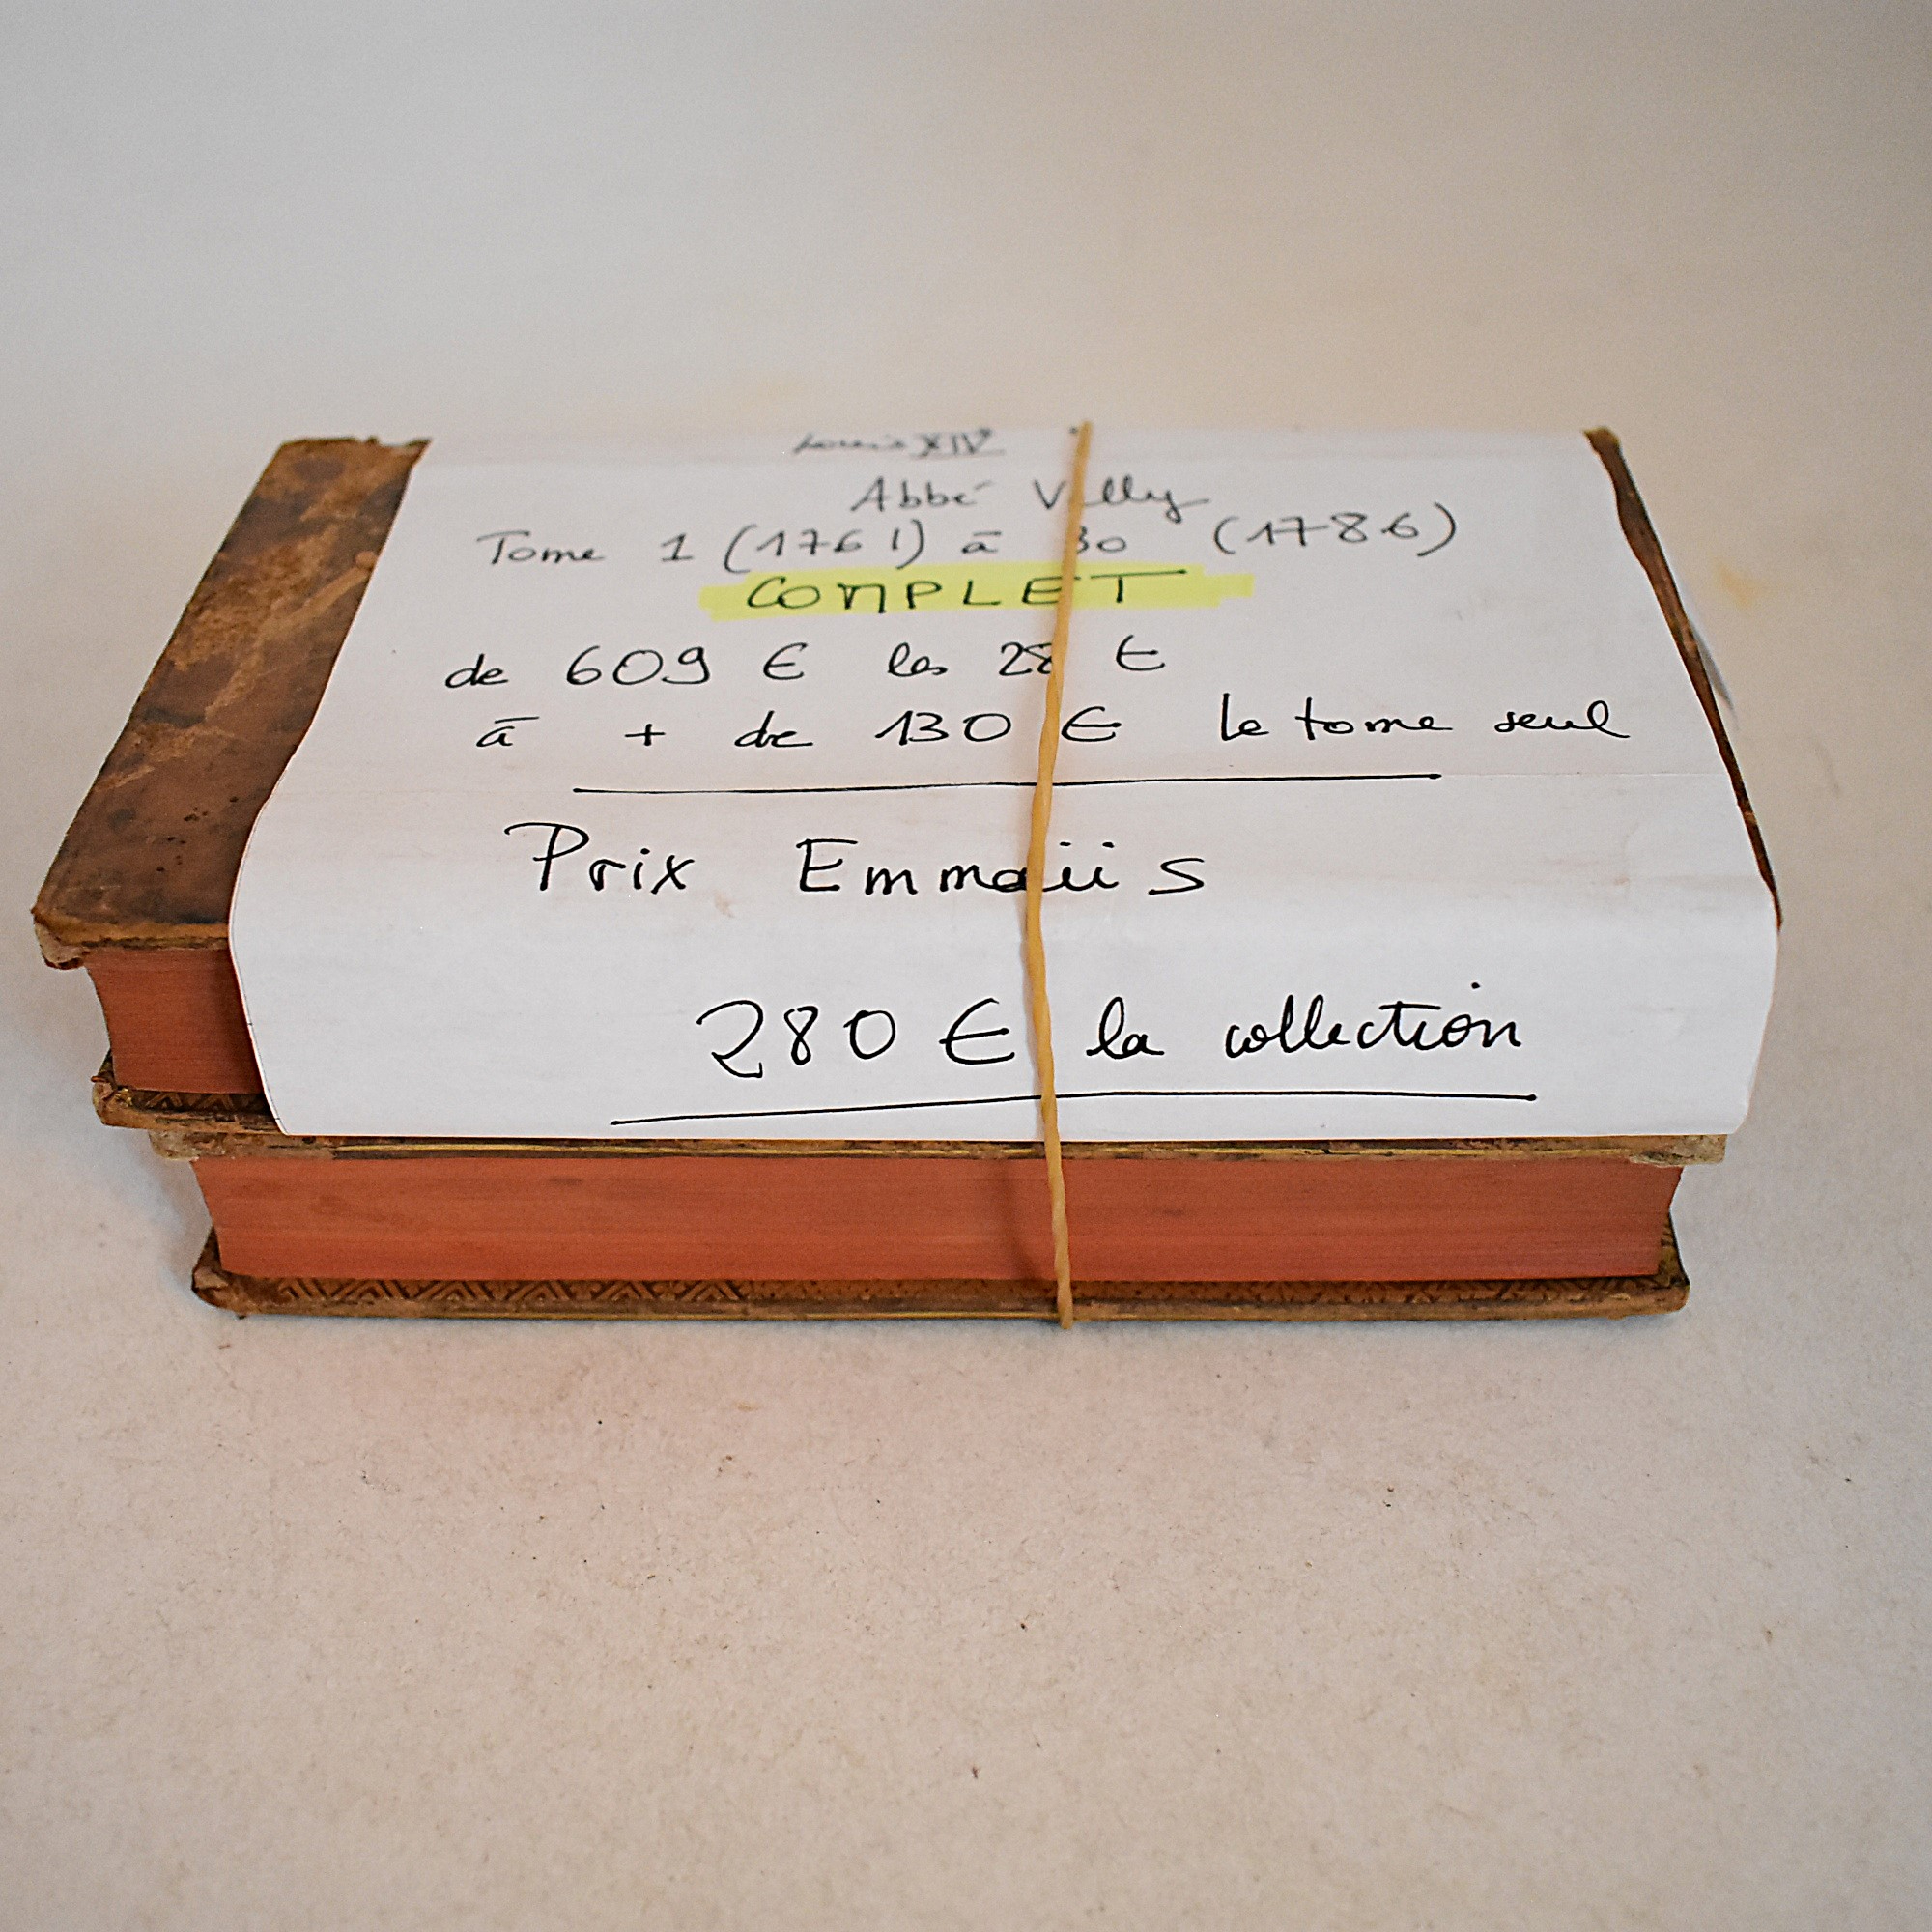 Louis XIV
Abbé Velly
Tome 1 (1761) à 30 (1786)
COMPLET
de 609 € les 28 t
à + de 130 € le tome seul
Prix Emmaüs
280 € la collection